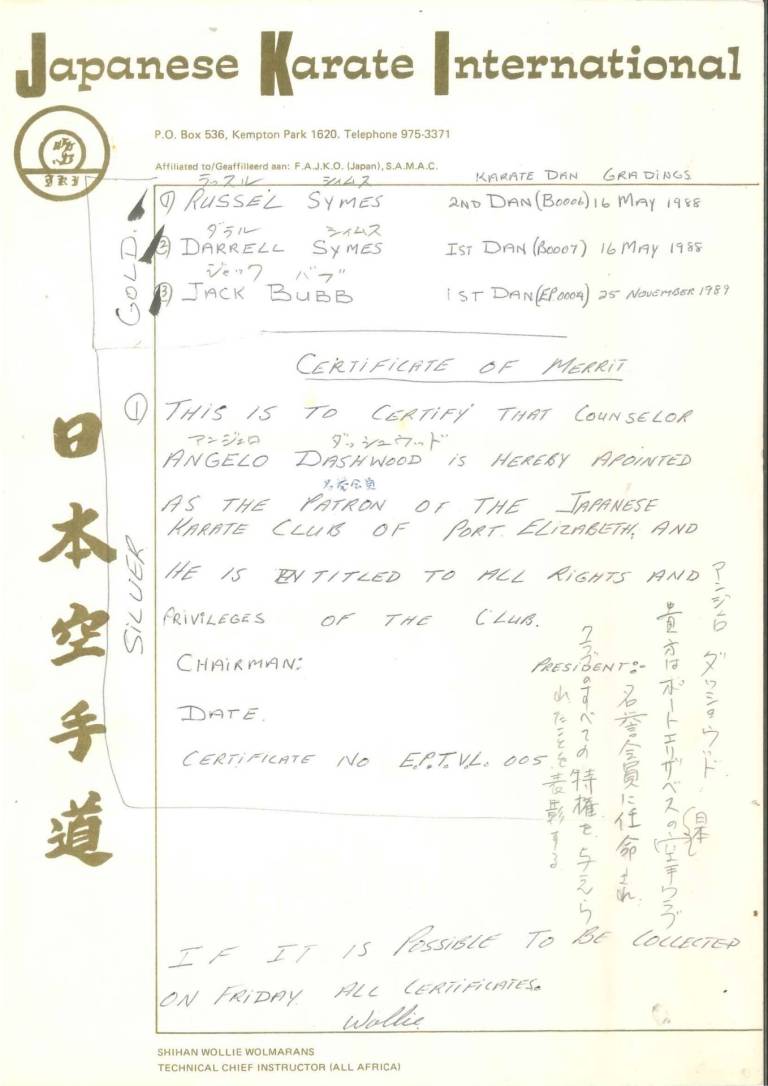 Japanese Karate International
P.O. Box 536, Kempton Park 1620. Telephone 975-3371
Affiliated to/Geaffilleerd aan: F.A.J.K.O. (Japan), S.A.M.A.C.
KARATE DAN GRADINGS
ラッスル シイムス
① RUSSEL SYMES 2ND DAN (B0006) 16 MAY 1988
ダラル シイムス
② DARRELL SYMES 1ST DAN (B0007) 16 MAY 1988
ジャック バブ
③ JACK BUBB 1ST DAN (EP0004) 25 NOVEMBER 1989
GOLD.
CERTIFICATE OF MERRIT
① THIS IS TO CERTIFY THAT COUNSELOR
アンジェロ ダッシュウッド
ANGELO DASHWOOD IS HEREBY APOINTED
名誉会員
AS THE PATRON OF THE JAPANESE
KARATE CLUB OF PORT ELIZABETH, AND
HE IS ENTITLED TO ALL RIGHTS AND
PRIVILEGES OF THE CLUB.
CHAIRMAN: PRESIDENT:-
DATE.
CERTIFICATE NO E.P.T.V.L. 005
SILVER
アンジェロ ダッシュウッド
貴方はポートエリザベスの空手クラブ
(日本
名誉会員に任命され
クラブのすべての特権を与えら
れたことを表彰する
日本空手道
IF IT IS POSSIBLE TO BE COLLECTED
ON FRIDAY ALL CERTIFICATES.
Wollie
SHIHAN WOLLIE WOLMARANS
TECHNICAL CHIEF INSTRUCTOR (ALL AFRICA)